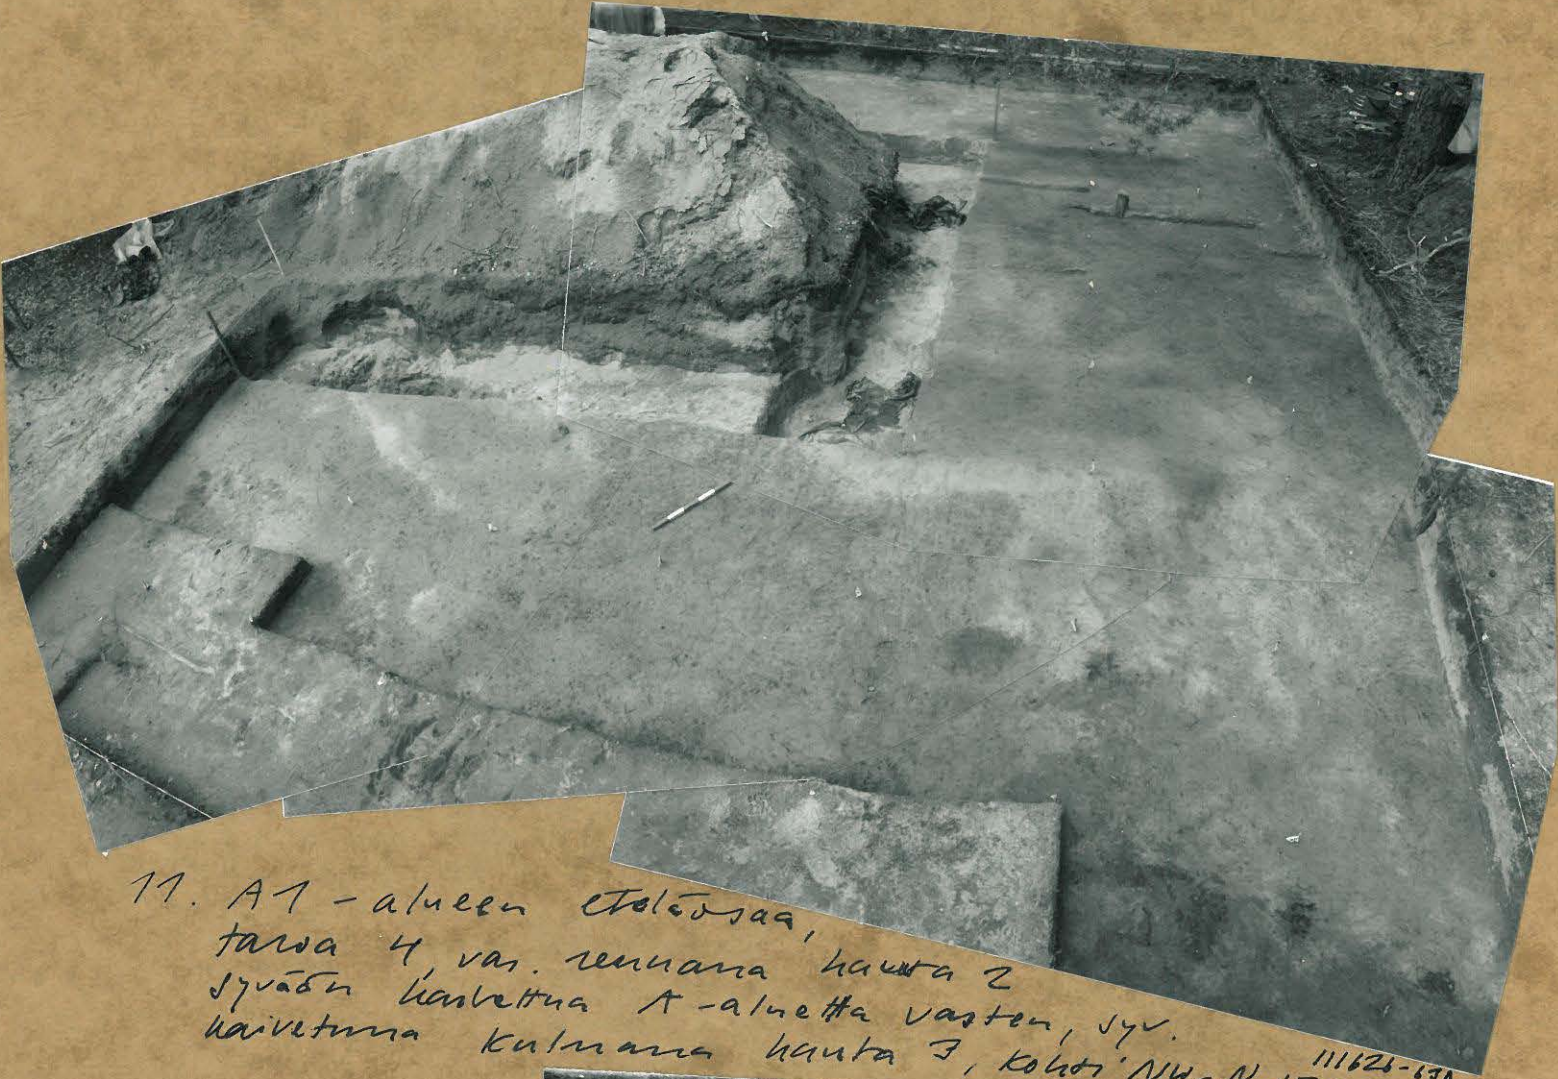 11. A1 - alueen eteläosaa,
tasoa 4, vas. reunana hauta 2
syvään kaivettua A-aluetta vasten, syv.
kaivetuna kulmana hauta 3, kohti NW-N
111626-